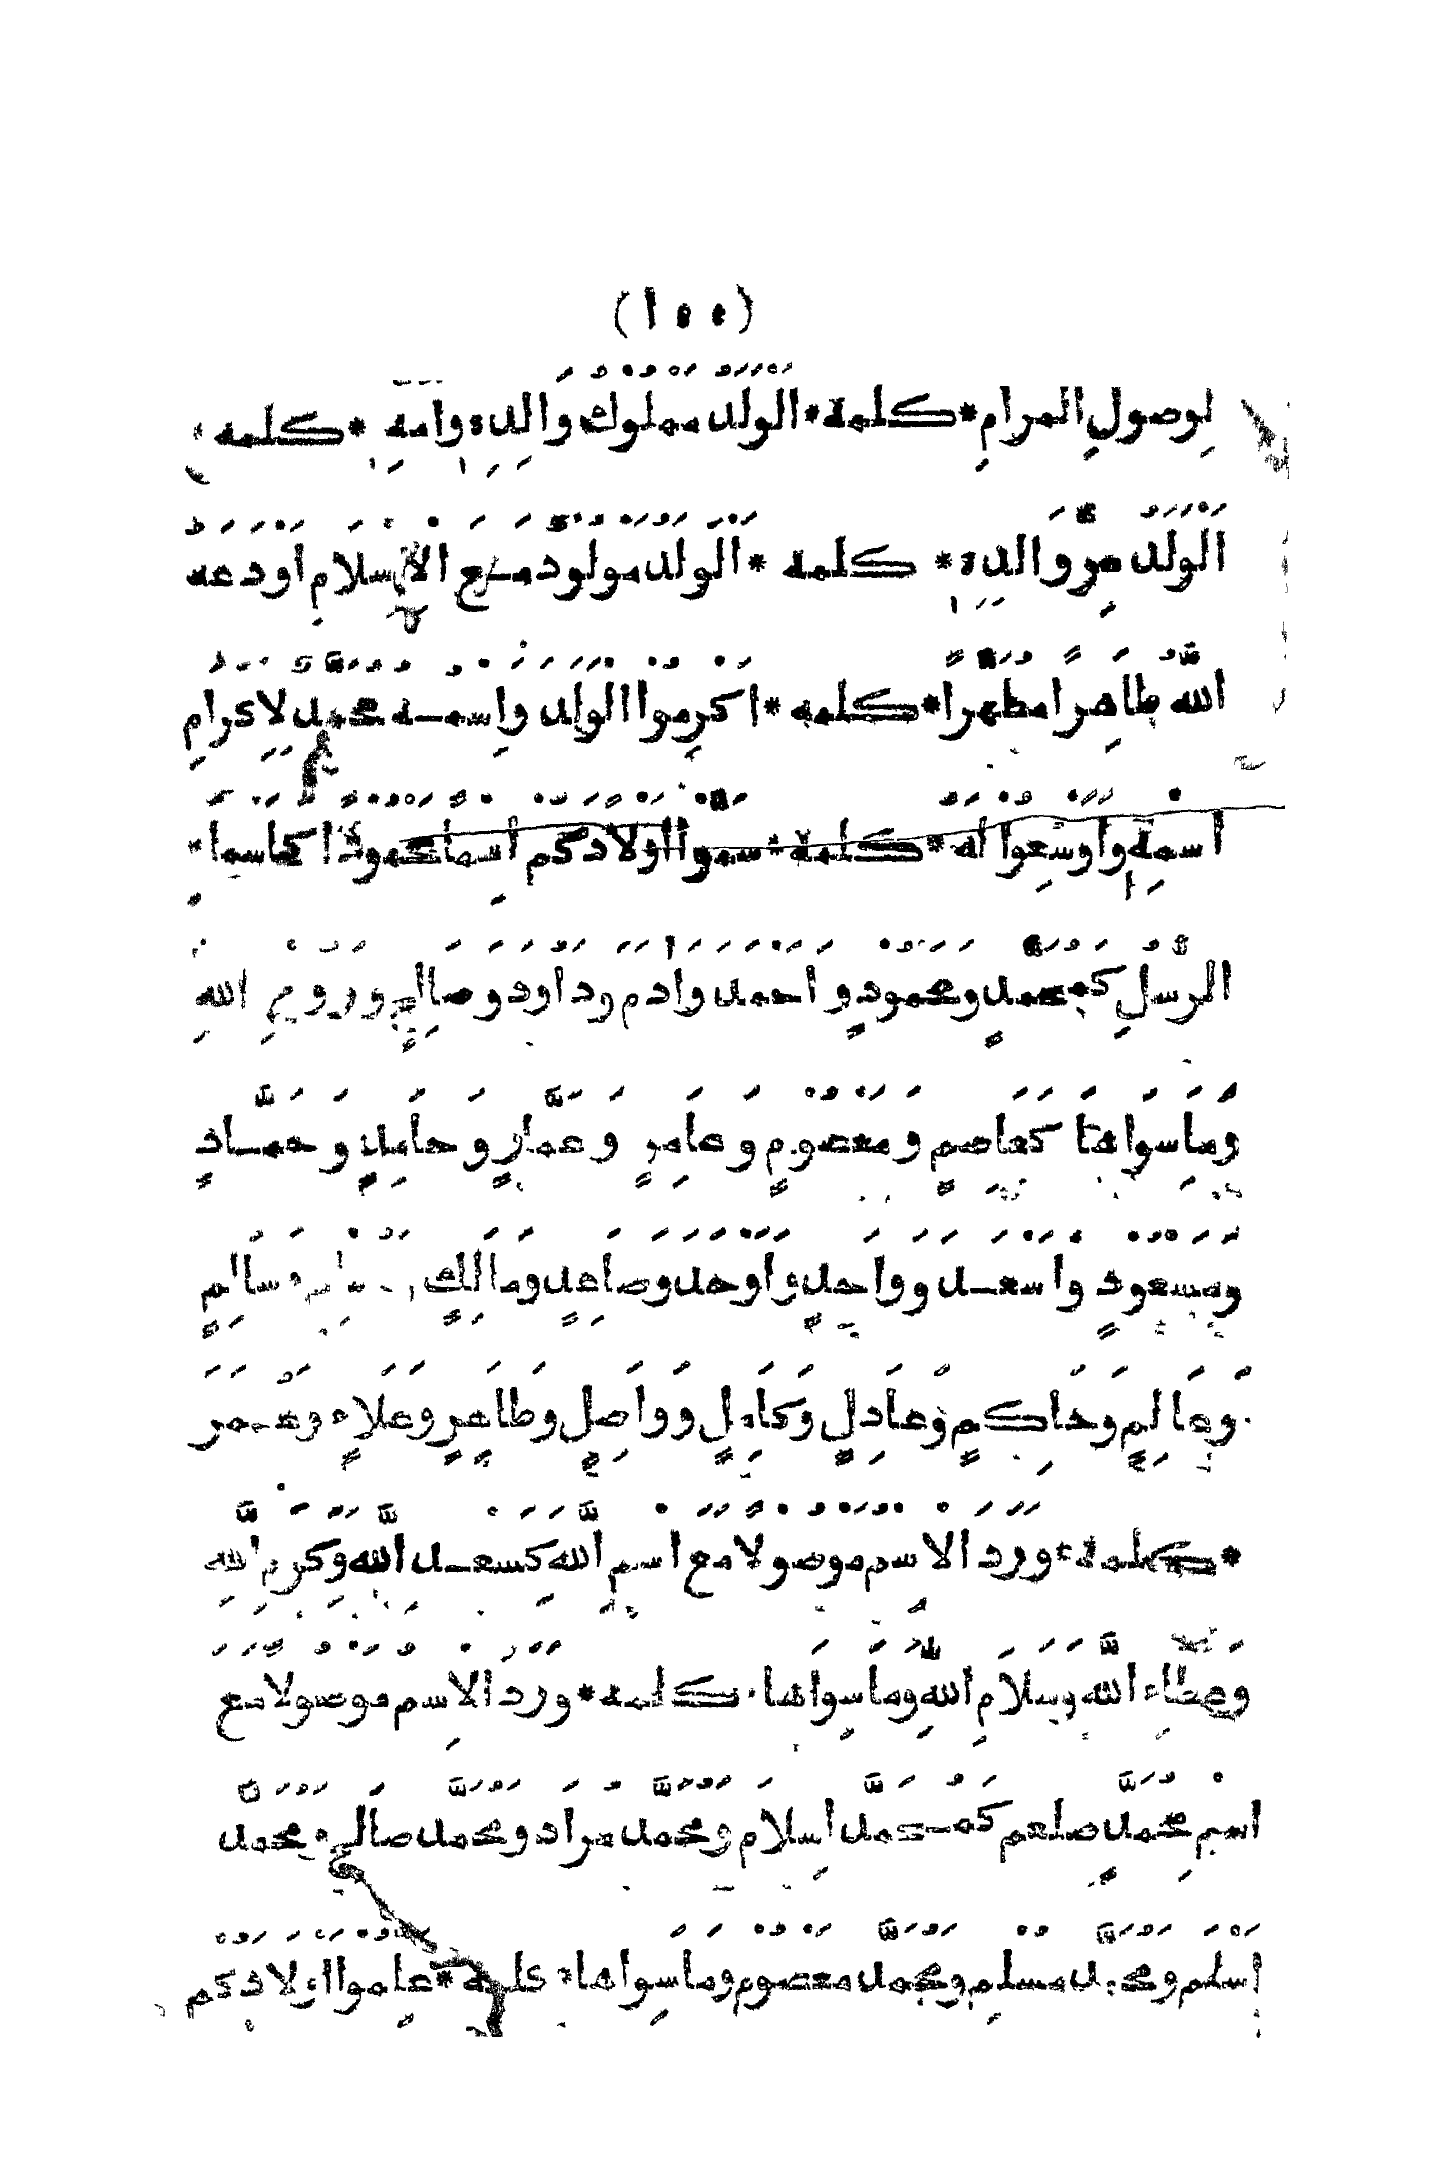 (١٥٥)
لِوصولِ المرامِ * كلمة * الْوَلَدُ مَمْلُوْكُ وَالِدِهٖ وَاُمِّهٖ * كلمه
الْوَلَدُ سِرُّ وَالِدِهٖ * كلمه * الْوَلَدُ مَوْلُوْدٌ مَعَ الْاِسْلَامِ اَوْدَعَهُ
اللّٰهُ طَاهِرًا مُطَهَّرًا * كلمه * اَكْرِمُوا الْوَلَدَ وَاِسْمُهُ مُحَمَّدٌ لِاِكْرَامِ
اسْمِهٖ وَاَوْسِعُوْا لَهُ * كلمة * سَمُّوْا اَوْلَادَكُمْ اِسْمًا مَحْمُوْدًا كَاَسْمَاءِ
الرُّسُلِ كَمُحَمَّدٍ وَمَحْمُوْدٍ وَاَحْمَدَ وَاٰدَمَ وَدَاوُدَ وَصَالِحٍ وَرُوْحِ اللّٰهِ
وَمَا سِوَاهَا كَعَاصِمٍ وَمَعْصُوْمٍ وَعَامِرٍ وَعَمَّارٍ وَحَامِدٍ وَحَمَّادٍ
وَمَسْعُوْدٍ وَاَسْعَدَ وَوَاحِدٍ وَاَوْحَدَ وَصَاعِدٍ وَمَالِكٍ وَسَالِمٍ
وَعَالِمٍ وَحَاكِمٍ وَعَادِلٍ وَكَامِلٍ وَوَاصِلٍ وَطَاهِرٍ وَعَلَاءٍ وَعُمَرَ
* كلمة * وَرَدَ الْاِسْمُ مَوْصُوْلًا مَعَ اسْمِ اللّٰهِ كَسَعْدِ اللّٰهِ وَكَرَمِ اللّٰهِ
وَعَطَاءِ اللّٰهِ وَسَلَامِ اللّٰهِ وَمَا سِوَاهَا * كلمة * وَرَدَ الْاِسْمُ مَوْصُوْلًا مَعَ
اسْمِ مُحَمَّدٍ صلعم كَمُحَمَّد اِسْلَام وَمُحَمَّد مُرَاد وَمُحَمَّد صَالِح وَمُحَمَّد
اَسْلَم وَمُحَمَّد مُسْلِم وَمُحَمَّد مَعْصُوْم وَمَا سِوَاهَا * كلمة * عَلِّمُوْا اَوْلَادَكُمْ